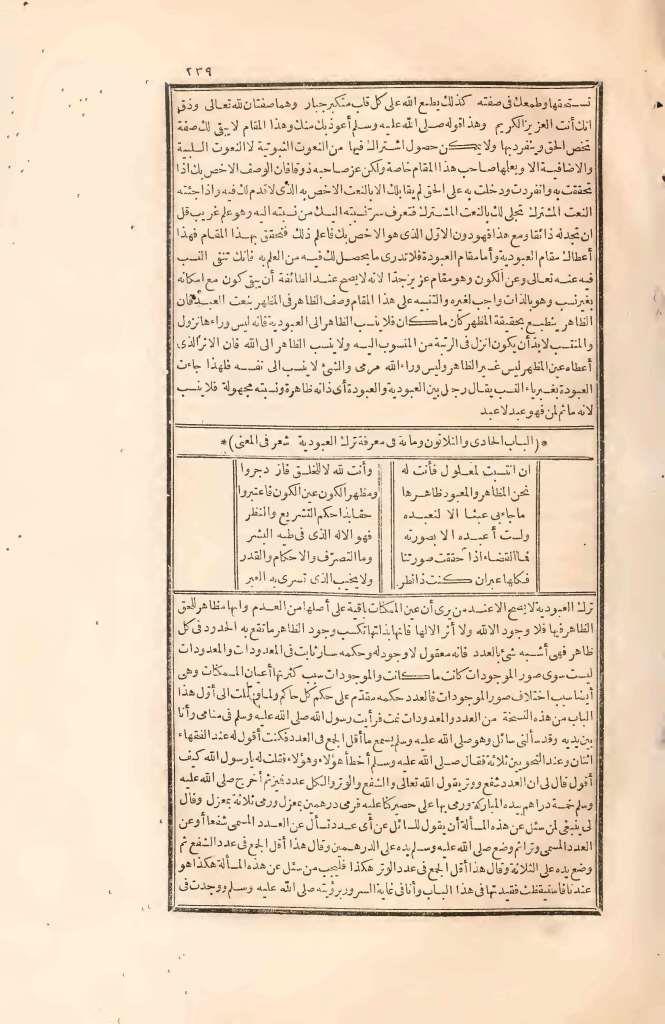 ٢٣٩
تستحقها وطمعك في صفته كذلك يطبع الله على كل قلب متكبر جبار وهما صفتان لله تعالى وذق
انك أنت العزيز الكريم وهذا قوله صلى الله عليه وسلم أعوذ بك منك وهذا المقام لا يبقى لك صفة
تخص الحق وينفرد بها ولا يمكن حصول اشتراك فيها من النعوت الثبوتية لا النعوت السلبية
والاضافية الا ويعلمها صاحب هذا المقام خاصة ولكن عز صاحبه ذوقا فان الوصف الاخص بك اذا
تحققت به وانفردت ودخلت به على الحق لم يقابلك الا بالنعت الاخص به الذى لا قدم لك فيه واذا جئته
النعت المشترك تجلى لك بالنعت المشترك فتعرف سر نسبته اليك من نسبته اليه وهو علم غريب قل
ان تجد له ذائقا ومع هذا فهو دون الاول الذى هو الاخص بك فاعلم ذلك فتحقق بهذا المقام فهذا
أعطاك مقام العبودية وأما مقام العبودة فلا تدرى ما يحصل لك فيه من العلم به فانك تنفى النسب
فيه عنه تعالى وعن الكون وهو مقام عزيز جدا لانه لا يصح عند الطائفة أن يبقى كون مع امكانه
بغير نسب وهو بالذات واجب لغيره والتنبيه على هذا المقام وصف الظاهر فى المظهر بنعت العبد فان
الظاهر ينطبع بحقيقة المظهر كان ما كان فلا ينسب الظاهر الى العبودية فانه ليس وراءها نزول
والمنتسب لا بد أن يكون أنزل فى الرتبة من المنسوب اليه ولا ينسب الظاهر الى الله فان الاثر الذى
أعطاه عين المظهر ليس غير الظاهر وليس وراء الله مرمى والشئ لا ينسب الى نفسه فلهذا جاءت
العبودة بغير ياء النسب يقال رجل بين العبودية والعبودة أى ذاته ظاهرة ونسبته مجهولة فلا ينسب
لانه ما ثم لمن فهو عبد لا عبد
*(الباب الحادى والثلاثون ومائة فى معرفة ترك العبودية شعر فى المعنى)*
ان انتسبت لمعلول فأنت له وأنت لله لا للخلق فازدجروا
نحن المظاهر والمعبود ظاهرها ومظهر الكون عين الكون فاعتبروا
ما جاء بى عبثا الا لنعبده حقا بذا حكم التشريع والنظر
ولست أعبده الا بصورته فهو الاله الذى فى طيه البشر
فما القضاء اذا حققت صورتنا وما التصرف والاحكام والقدر
فكلها عبران كنت ذا نظر ولا يخيب الذى تسرى به العبر
ترك العبودية لا يصح الا عند من يرى أن عين الممكنات باقية على أصلها من العدم وانها مظاهر للحق
الظاهر فيها فلا وجود الا لله ولا أثر الا لها فانها بذاتها تكسب وجود الظاهر ما تقع به الحدود فى كل
ظاهر فهى أشبه شئ بالعدد فانه معقول لا وجود له وحكمه سار ثابت فى المعدودات والمعدودات
ليست سوى صور الموجودات كانت ما كانت والموجودات سبب كثرتها أعيان الممكنات وهى
أيضا سبب اختلاف صور الموجودات فالعدد حكمه مقدم على حكم كل حاكم ولما وصلت الى أول هذا
الباب من هذه النسخة من العدد والمعدودات نمت فرأيت رسول الله صلى الله عليه وسلم فى منامى وأنا
بين يديه وقد سألنى سائل وهو صلى الله عليه وسلم يسمع ما أقل الجمع فى العدد فكنت أقول له عند الفقهاء
اثنان وعند النحويين ثلاثة فقال صلى الله عليه وسلم أخطأ هؤلاء وهؤلاء فقلت له يا رسول الله كيف
أقول قال لى ان العدد شفع ووتر يقول الله تعالى والشفع والوتر والكل عدد فميز ثم أخرج صلى الله عليه
وسلم خمسة دراهم بيده المباركة ورمى بها على حصير كنا عليه فرمى درهمين بمعزل ورمى ثلاثة بمعزل وقال
لى ينبغى لمن سئل عن هذه المسألة أن يقول للسائل عن أى عدد تسأل عن العدد المسمى شفعا أو عن
العدد المسمى وترا ثم وضع صلى الله عليه وسلم يده على الدرهمين وقال هذا أقل الجمع فى عدد الشفع ثم
وضع يده على الثلاثة وقال هذا أقل الجمع فى عدد الوتر هكذا فليجب من سئل عن هذه المسألة هكذا هو
عندنا فاستيقظت فقيدتها فى هذا الباب وأنا فى غاية السرور برؤيته صلى الله عليه وسلم ووجدت فى